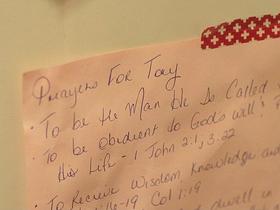 Prayers For Tay
· To be the Man He Is Called
· To be Obedient to Gods will!
His Life - 1 John 2:1, 3:22
· To Recieve Wisdom Knowledge and
-19 Col 1:19
dwell in